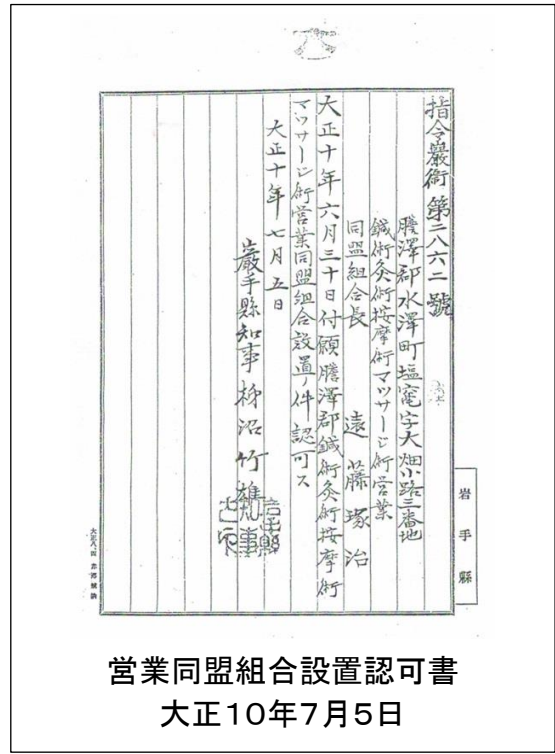 指令巖衛第二八六二號
膽澤郡水澤町塩竃字大畑小路三番地
鍼術灸術按摩術マツサージ術営業
同盟組合長 遠藤塚治
大正十年六月三十日付願膽澤郡鍼術灸術按摩術
マツサージ術営業同盟組合設置ノ件認可ス
大正十年七月五日
巖手縣知事柳沼竹雄
岩手縣
営業同盟組合設置認可書
大正10年7月5日